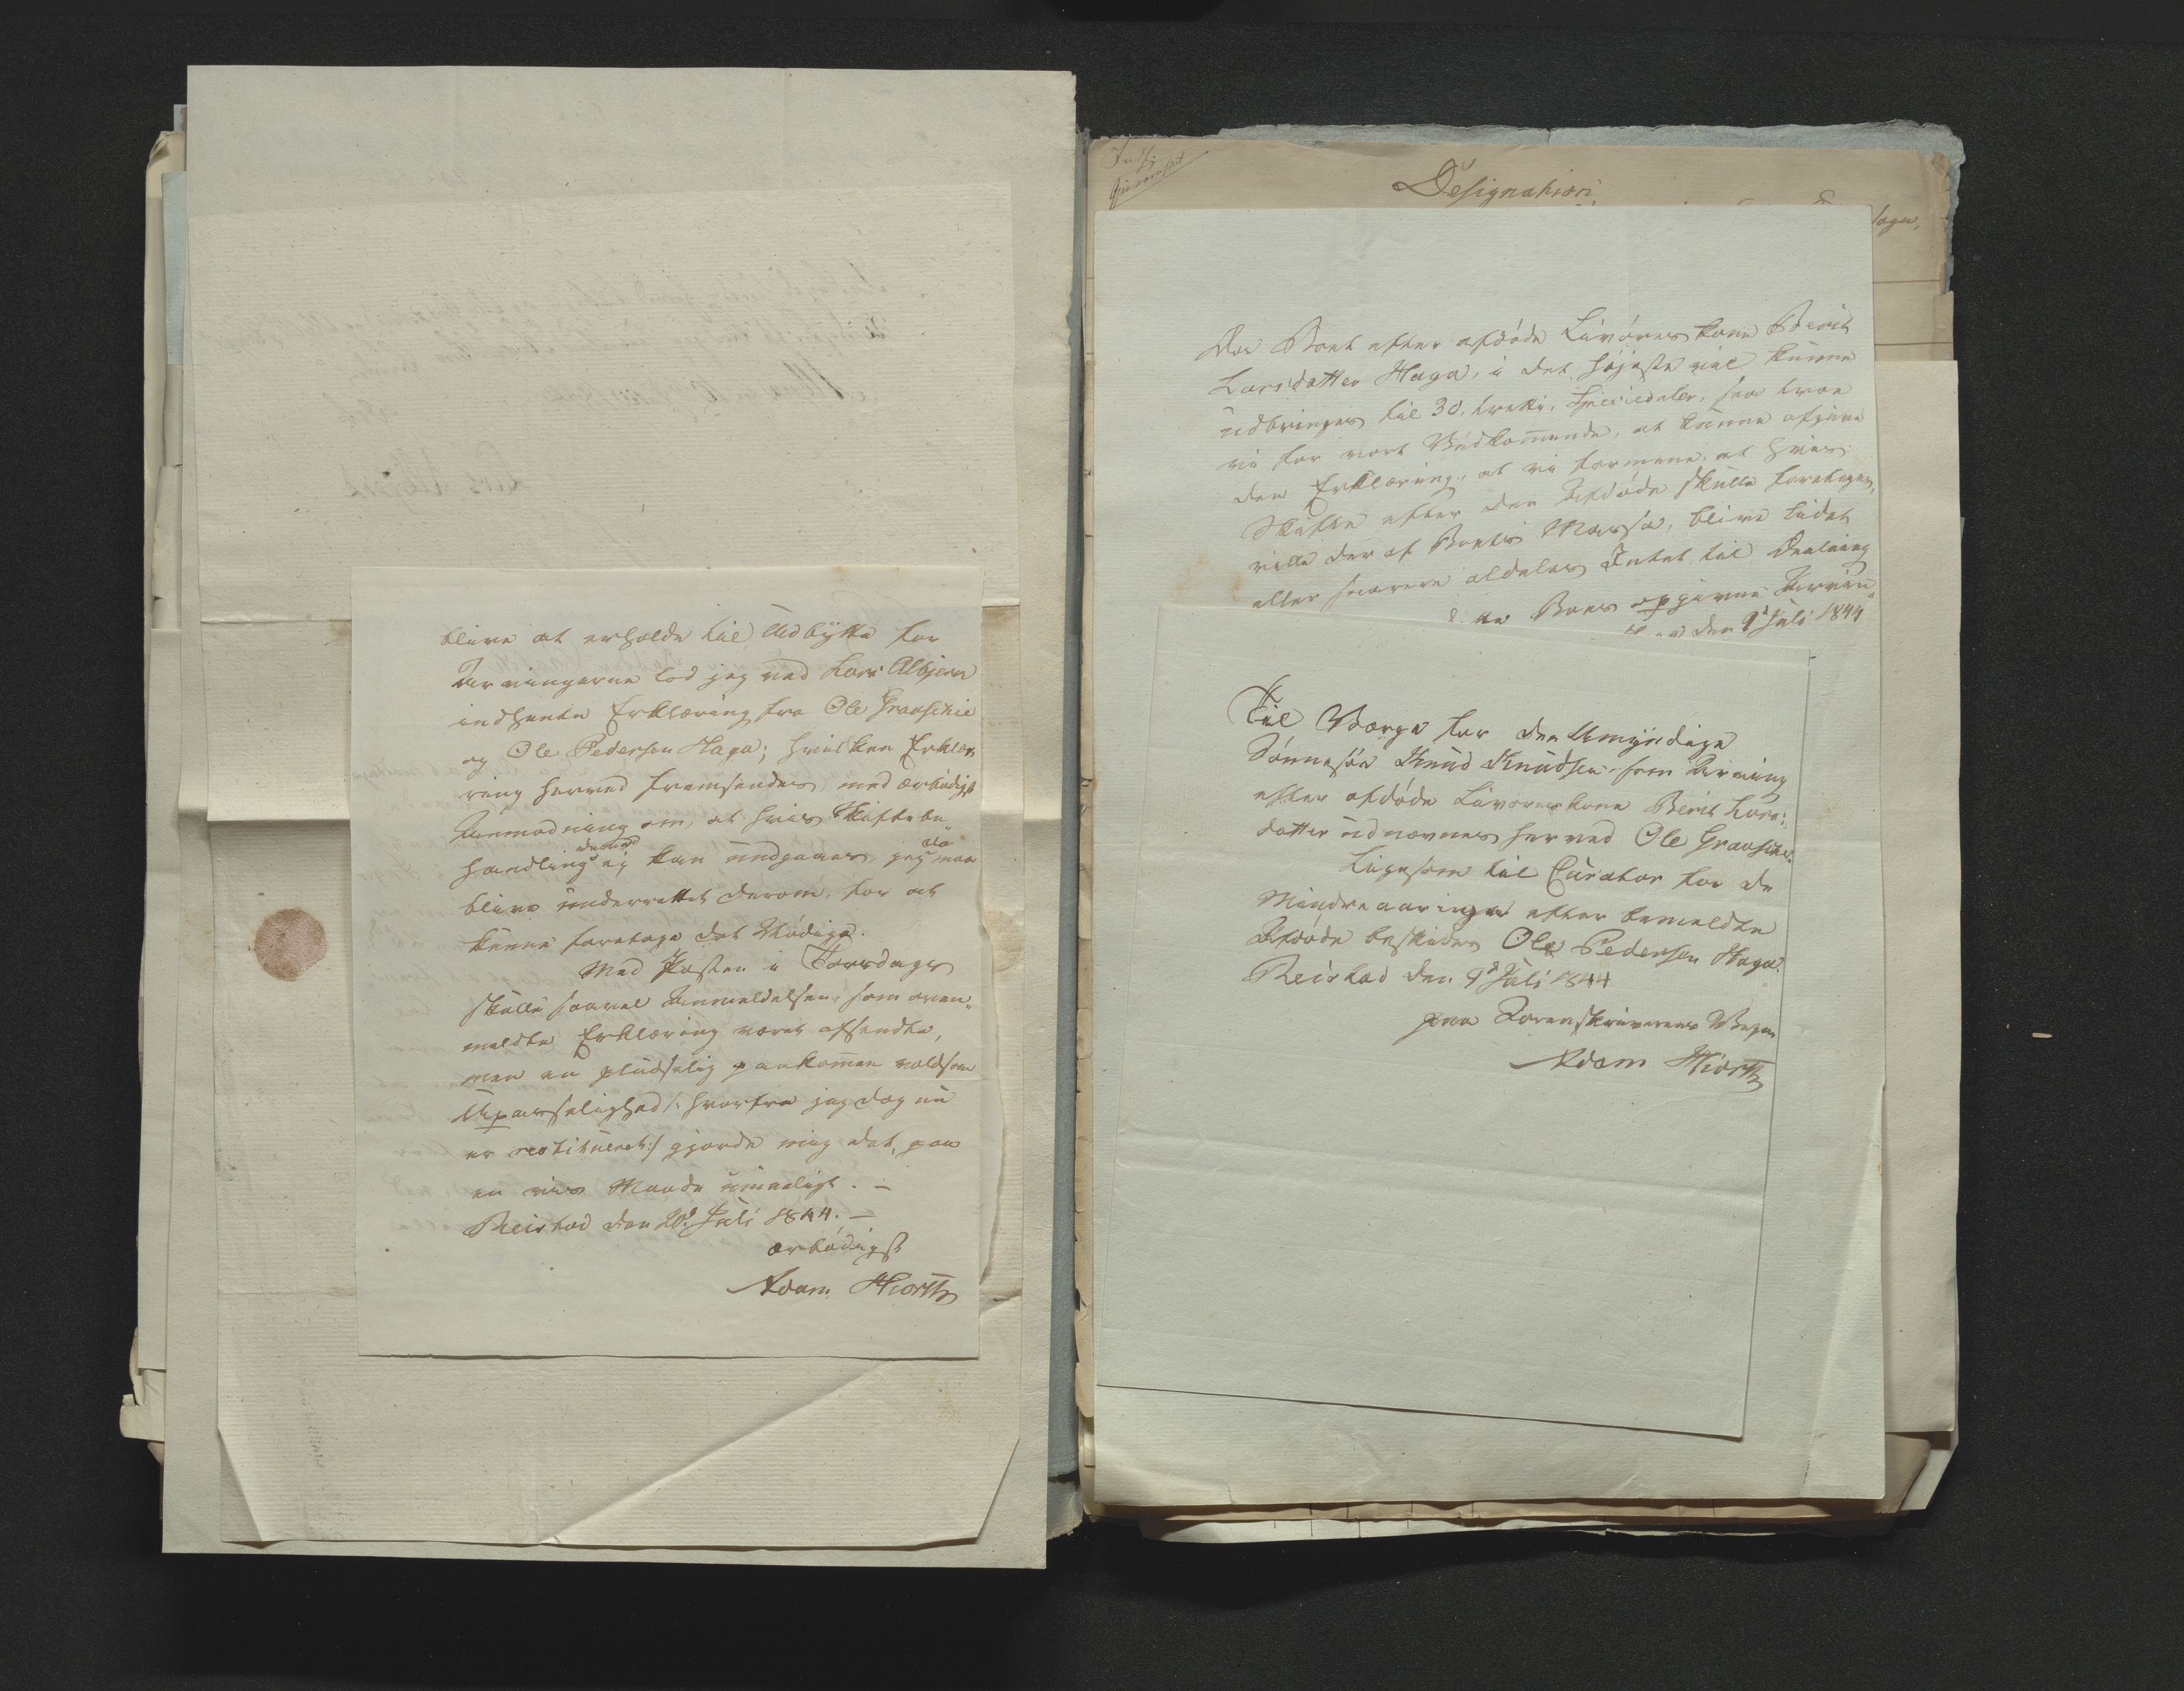 blive at erholde til Udbytte for
Arvingerne lod jeg ved Lars Albjerr
indhente Erklæring fra Ole Graasihie
og Ole Pedersen Haga; hvilken Erklæ-
ring herved fremsendes, med ærbødigst
Anmodning om, at hvis Skiftebe
handling dermed ej kan undgaaes, jeg da maa
blive underrettet derom, for at
kunne foretage det Nødige.
Med Posten i Torsdags
skulle saavel Anmeldelsen, som oven-
meldte Erklæring været afsendte,
men en pludselig paakommen voldsom
Upasselighed /: hvorfra jeg dog nu
er restitueret :/ gjorde mig det, paa
en vis Maade umueligt. –
Reistad den 20d Juli 1844. –
ærbødigst
Adam Hiorth
Designation
Da Boet efter afdøde Livøreskone Berit
Larsdatter Haga, i det høieste vil kunne
udbringes til 30, tretti, Speciedaler, saa troe
vi for vort Vedkommende, at kunne afgive
den Erklæring, at vi formene, at hvis
Skifte efter den Afdøde skulle foretages,
ville der af Boets Massa, blive lidet
eller snarere aldeles Intet til Deeling
Boes opgivne Arvin-
den 9d Juli 1844
Til Værge for den Umyndige
Sønnesøn Knud Knudsen som Arving
efter afdøde Livøreskone Berit Lars-
datter udnævnes herved Ole Graasihie.
Ligesom til Curator for de
Mindreaaringer efter bemeldte
Afdøde beskikkes Ole Pedersen Haga.
Reistad den 9d Juli 1844
paa Sorenskriverens Vegne
Adam Hiorth